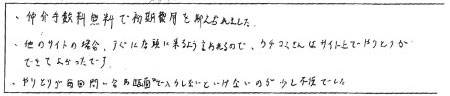 ・仲介手数料無料で初期費用を抑えられました。
・他のサイトの場合、すぐに店頭に来るよう言われるので、ウチコミさんはサイト上でやりとりが
できてよかったです。
・やりとりが毎回問い合わせ画面で入力しないといけないのが少し不便でした。